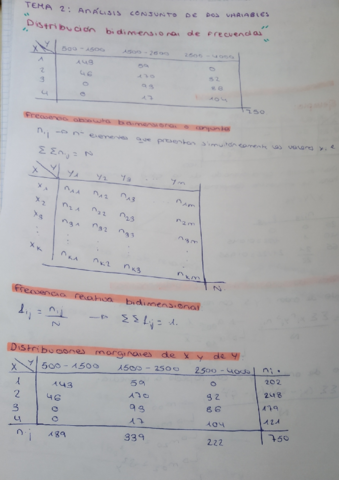 TEMA 2: ANÁLISIS CONJUNTO DE DOS VARIABLES
"Distribución bidimensional de frecuencias"
X Y 500-1500 1500-2500 2500-4000
1 143 59 0
2 46 170 32
3 0 93 86
4 0 17 104
750
Frecuencia absoluta bidimensional o conjunta
nij → nº elementos que presentan simultáneamente
ΣΣnij = N
X Y y1 y2 y3 ym
x1 n11 n12 n13 n1m
x2 n21 n22 n23 n2m
x3 n31 n32 n33 n3m
⋮ ⋮ ⋮ ⋮
xk nk1 nk2 nk3 nkm
N
Frecuencia relativa bidimensional
fij = nij/N → ΣΣfij = 1.
Distribuciones marginales de X y de Y
X Y 500-1500 1500-2500 2500-4000 ni.
1 143 59 0 202
2 46 170 32 248
3 0 93 86 179
4 0 17 104 121
n.j 189 339 222 750